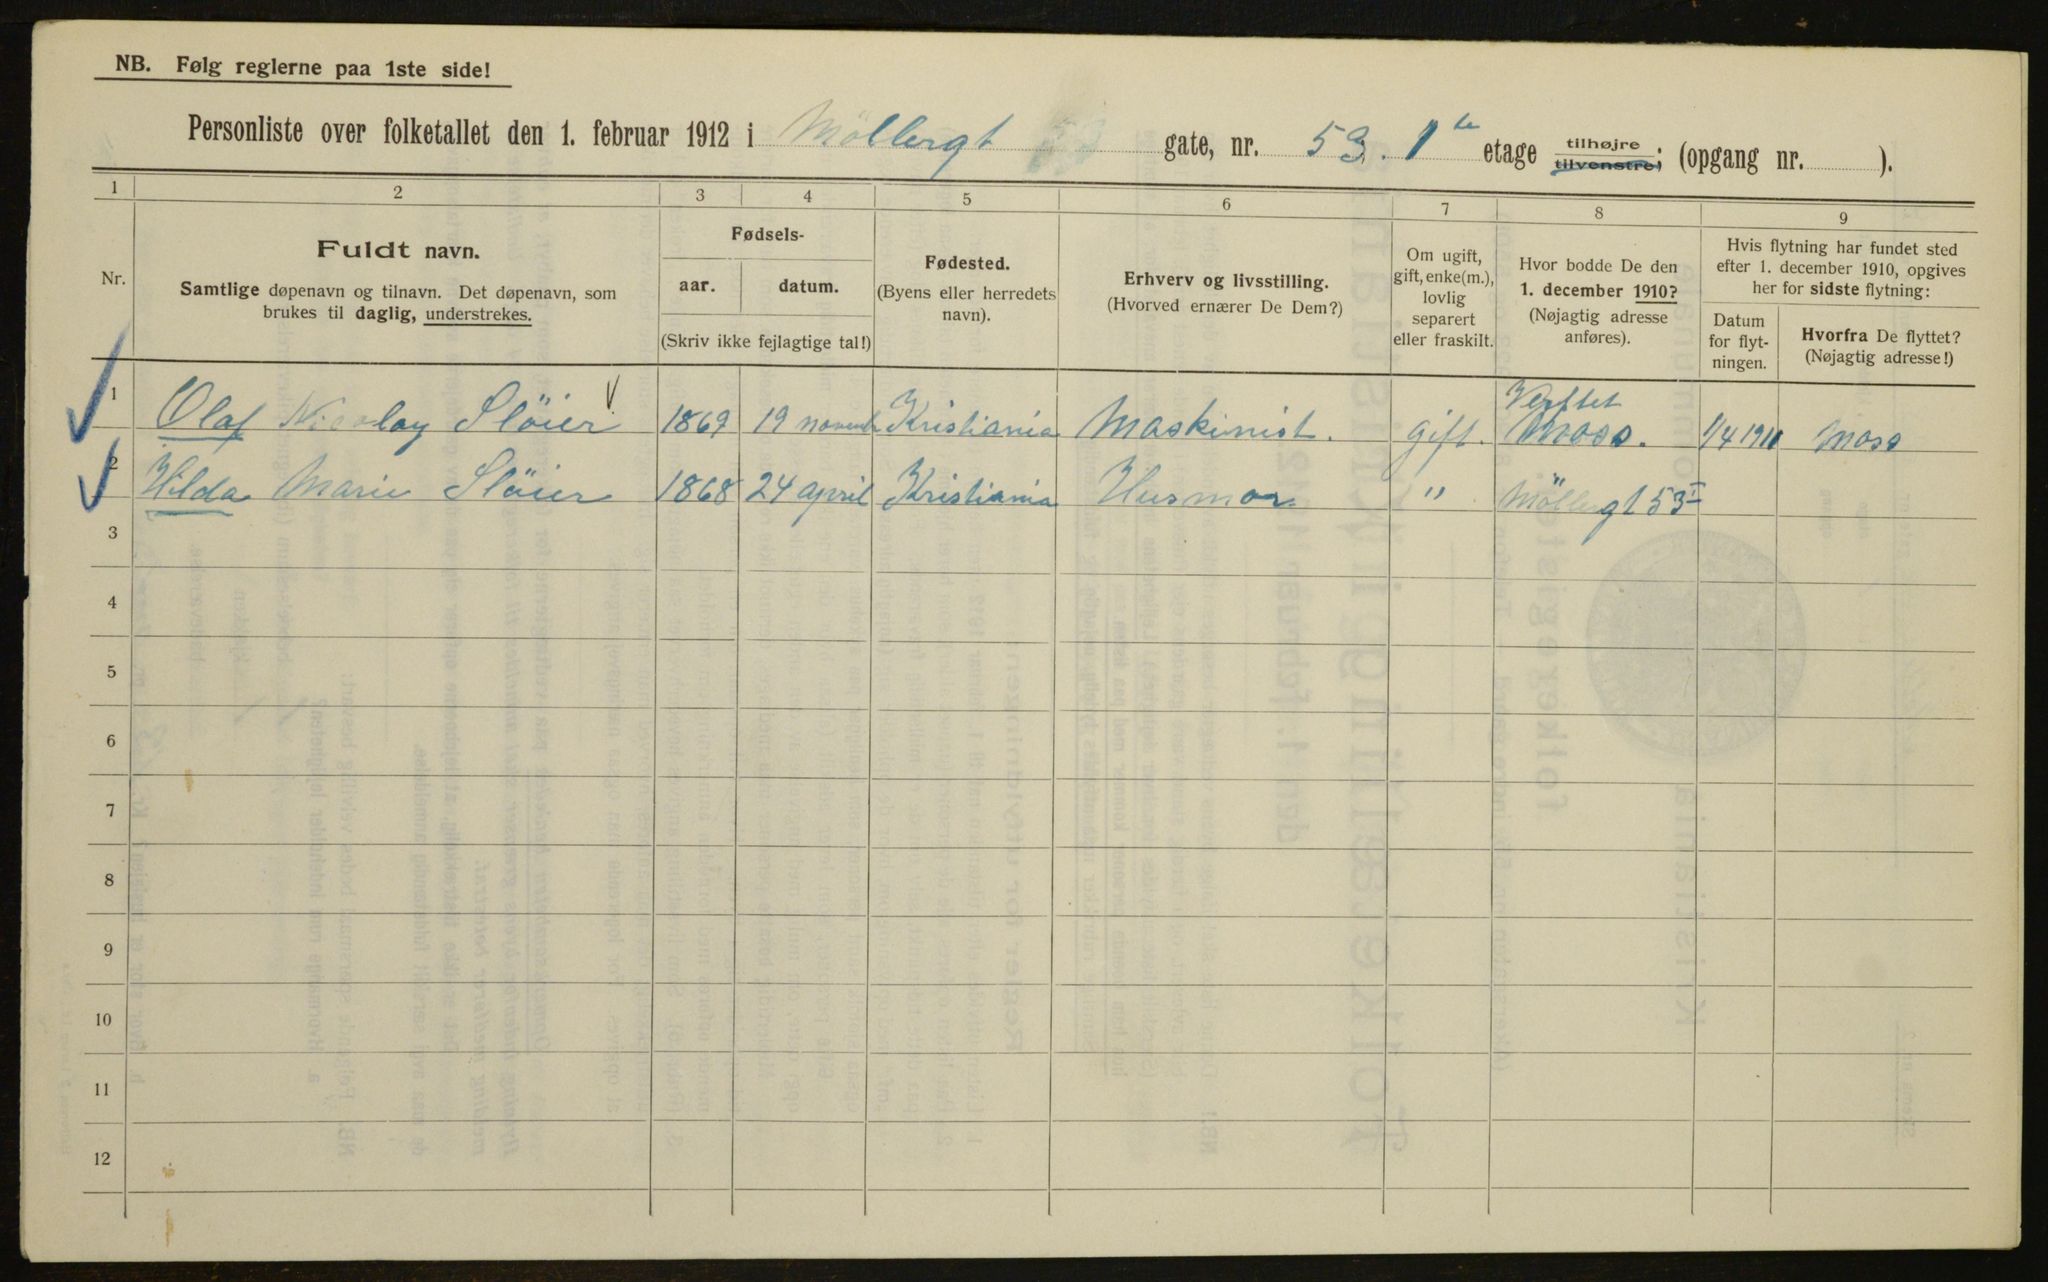 NB. Følg reglerne paa 1ste side!
Personliste over folketallet den 1. februar 1912 i Möllergt gate, nr. 53. 1te etage tilhøjre tilvenstre; (opgang nr. ).
1 2 3 4 5 6 7 8 9
Nr.
Fuldt navn.
Samtlige døpenavn og tilnavn. Det døpenavn, som
brukes til daglig, understrekes.
Fødsels-
aar. datum.
(Skriv ikke fejlagtige tal!)
Fødested.
(Byens eller herredets
navn).
Erhverv og livsstilling.
(Hvorved ernærer De Dem?)
Om ugift,
gift, enke(m.),
lovlig
separert
eller fraskilt.
Hvor bodde De den
1. december 1910?
(Nøjagtig adresse
anføres).
Hvis flytning har fundet sted
efter 1. december 1910, opgives
her for sidste flytning:
Datum
for flyt-
ningen.
Hvorfra De flyttet?
(Nøjagtig adresse!)
1 Olaf Nicolay Slöier 1869 19 novemb Kristiania Maskinist. gift. Verftet Moss. 1/4 1911 Moss
2 Hilda Marie Slöier 1868 24 april Kristiania Husmor " Möllergt 53 I
3
4
5
6
7
8
9
10
11
12